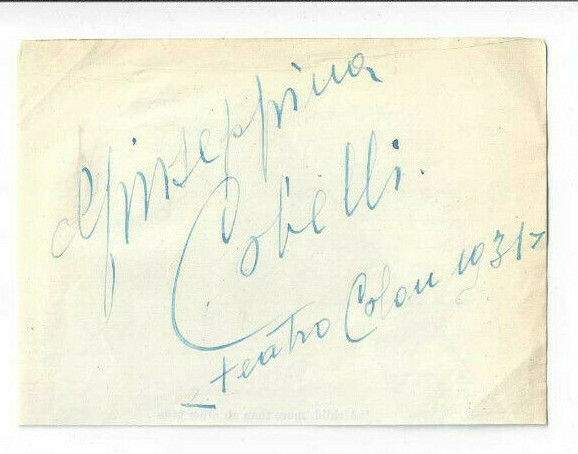 Giuseppina
Cobelli.
- teatro Colon 1931 -